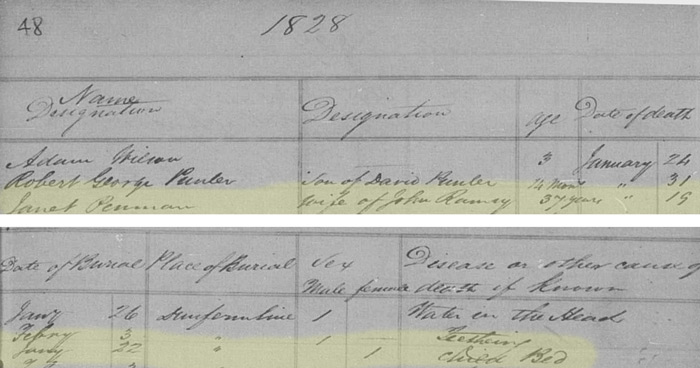 48 1828
Name
Designation Designation age Date of death
Adam Wilson 3 January 24
Robert George Punler Son of David Punler 14 Mons " 31
Janet Penman wife of John Ramsay 37 years " 19
Date of Burial Place of Burial Sex Disease or other cause of
Male female death if known
Jany 26 Dunfermline 1 Water in the Head
Febry 3 " 1 Teething
Jany 22 " 1 Child Bed